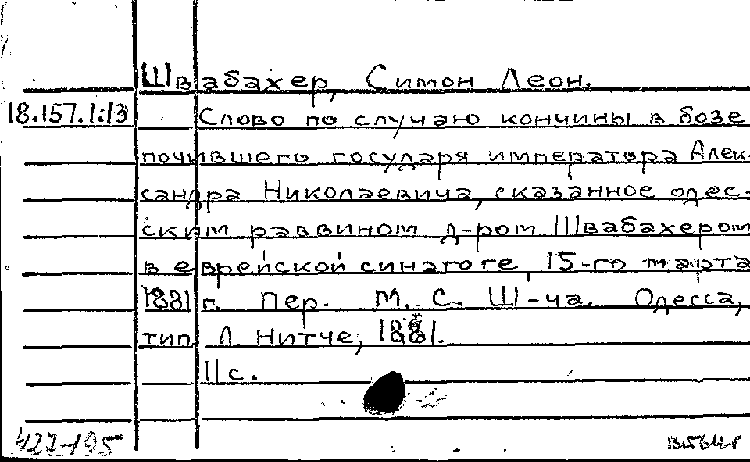 Швабахер, Симон Леон.
18.157.1.13 Слово по случаю кончины в бозе
почившего государя императора Алек-
сандра Николаевича, сказанное одес-
ским раввином д-ром Швабахером
в еврейской синагоге, 15-го марта
1881 г. Пер. М. С. Ш-ча. Одесса,
тип. Л. Нитче, 1881.
11 с.
427-195